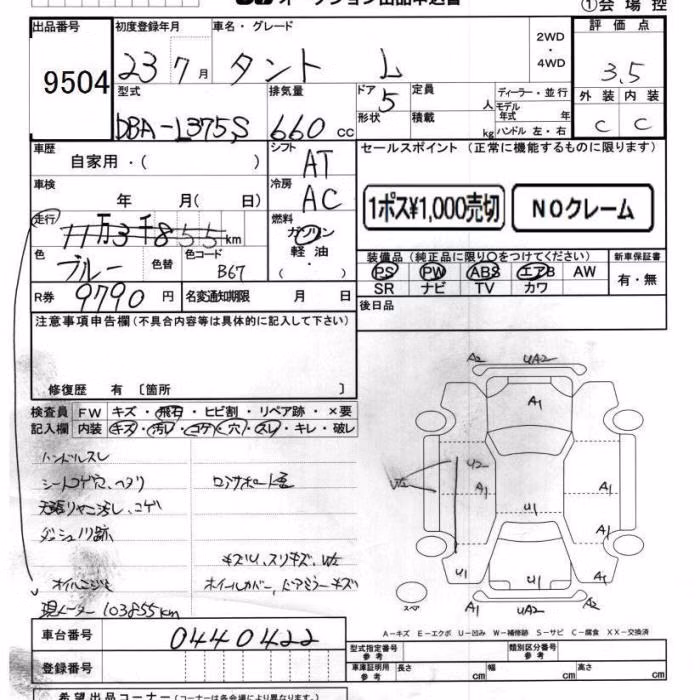 オークション出品申込書 ①会場控
出品番号 初度登録年月 車名・グレード 2WD・4WD 評価点
9504 23 7月 タント L 3.5
型式 排気量 ドア 5 定員 人 ディーラー・並行 外装 内装
DBA-L375S 660cc 形状 積載 kg モデル年式 年 ハンドル 左・右 C C
車歴 自家用・( ) シフト AT セールスポイント (正常に機能するものに限ります)
車検 年 月( 日) 冷房 AC 1ポス¥1,000売切 NOクレーム
走行 11万3千855km 燃料 ガソリン
軽油
・( )
色 ブルー 色替 色コード B67
装備品(純正品に限り○をつけてください) 新車保証書
PS PW ABS エアB AW 有・無
SR ナビ TV カワ
R券 9790円 名変通知期限 月 日
後日品
注意事項申告欄(不具合内容等は具体的に記入して下さい)
修復歴 有 〔箇所 〕
検査員 FW キズ・飛石・ヒビ割・リペア跡・×要
記入欄 内装 キズ・汚レ・コゲ・穴・スレ・キレ・破レ
ハンドルスレ
シートコゲ穴、ヘタリ
天張りヤニ汚レ、コゲ
ダッシュノリ跡
ロアサポート歪
キズU、スリキズ、W2
オイルニジミ ホイールカバー、ドアミラーキズ
現メーター 103855km
A2 UA2
A1
U2
W2
A1 A1
U1 A1
U1 U1 A1
A1 UA2 A2
スペア
A-キズ E-エクボ U-凹み W-補修跡 S-サビ C-腐食 XX-交換済
車台番号 0440422
登録番号
型式指定番号 参考 類別区分番号 参考
車庫証明用 参考 長さ cm 幅 cm 高さ cm
希望出品コーナー(コーナーは各会場により異なります。)